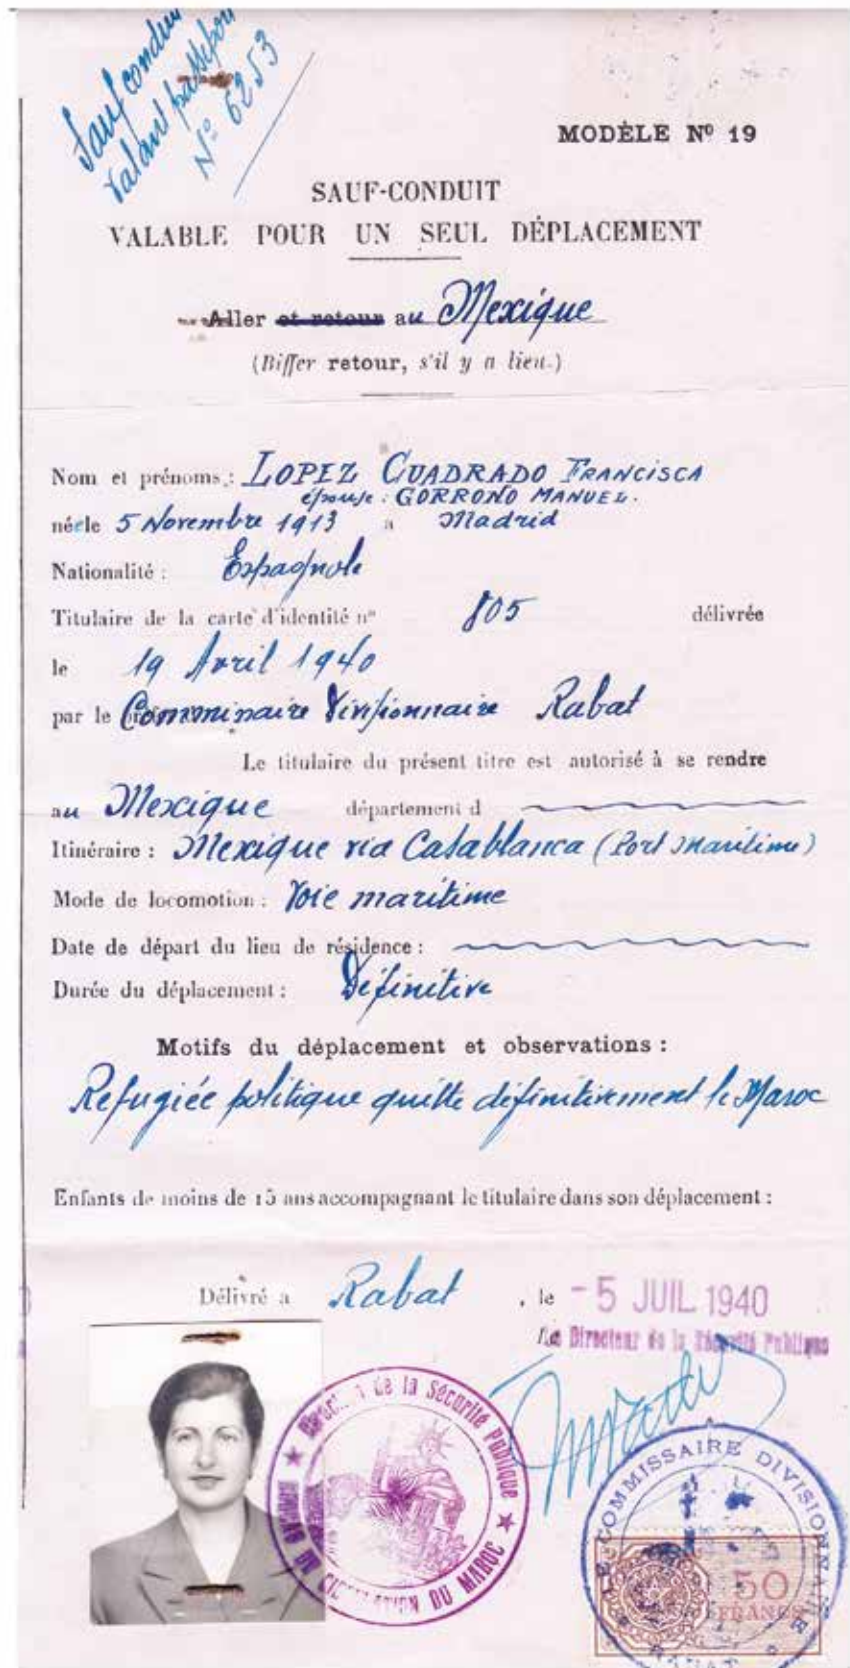 Sauf conduit
valant passeport
Nº 6253
MODÈLE Nº 19
SAUF-CONDUIT
VALABLE POUR UN SEUL DÉPLACEMENT
Aller et retour au Mexique
(Biffer retour, s'il y a lieu.)
Nom et prénoms : LOPEZ CUADRADO FRANCISCA
épouse : GORROÑO MANUEL.
née le 5 Novembre 1913 a Madrid
Nationalité : Espagnole
Titulaire de la carte d'identité nº 805 délivrée
le 19 Avril 1940
par le Commissaire Divisionnaire Rabat
Le titulaire du présent titre est autorisé à se rendre
au Mexique département d
Itinéraire : Mexique via Casablanca (Port Maritime)
Mode de locomotion : Voie maritime
Date de départ du lieu de résidence :
Durée du déplacement : Définitive
Motifs du déplacement et observations :
Refugiée politique quitte définitivement le Maroc
Enfants de moins de 15 ans accompagnant le titulaire dans son déplacement :
Délivré a Rabat, le - 5 JUIL 1940
Le Directeur de la Sécurité Publique
de la Sécurité Publique
DU MAROC
LE COMMISSAIRE DIVISIONNAIRE
50
FRANCS
RABAT